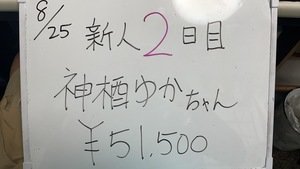 8/25
新人2日目
神栖ゆかちゃん
¥51,500